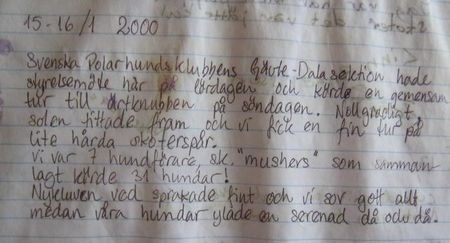 15-16/1 2000
Svenska Polarhundsklubbens Gävle-Dalasektion hade
styrelsemöte här på lördagen och körde en gemensam
tur till årtknubben på söndagen. Nollgradigt,
solen tittade fram och vi fick en fin tur på
lite hårda skoterspår.
Vi var 7 hundförare, sk. "mushers" som samman-
lagt körde 31 hundar!
Nykluven ved sprakade fint och vi sov gott allt
medan våra hundar ylade en serenad då och då.